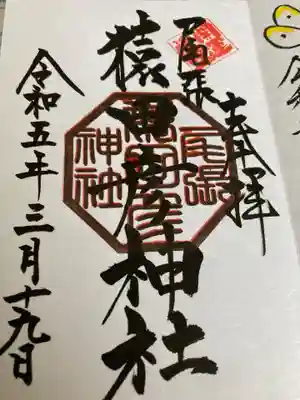 奉拝
尾張
猿田彦神社
令和五年三月十九日
尾張
神社